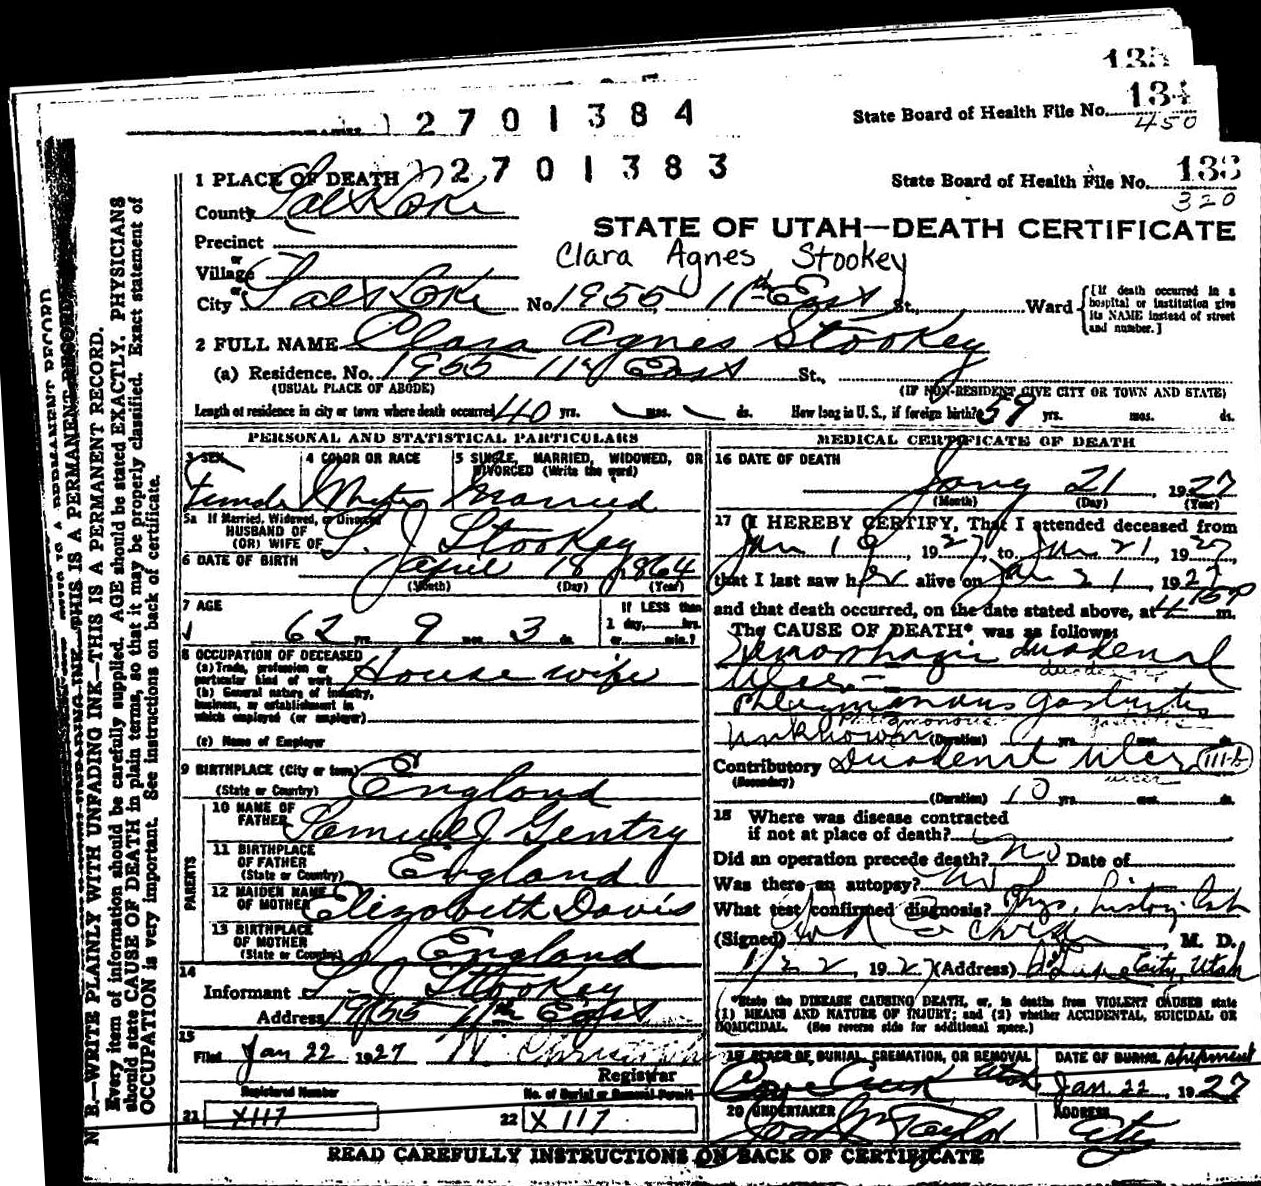 135
State Board of Health File No. 134
2701384
450
2701383
State Board of Health File No. 133
320
1 PLACE OF DEATH
County Salt Lake
STATE OF UTAH—DEATH CERTIFICATE
Precinct
or
Village
Clara Agnes Stookey
or
City Salt Lake No. 1955 11th East St., Ward
[If death occurred in a hospital or institution give its NAME instead of street and number.]
2 FULL NAME Clara Agnes Stookey
(a) Residence. No. 1955 11th East St.,
(USUAL PLACE OF ABODE) (IF NON-RESIDENT GIVE CITY OR TOWN AND STATE)
Length of residence in city or town where death occurred 40 yrs. mos. ds. How long in U. S., if foreign birth? 59 yrs. mos. ds.
PERSONAL AND STATISTICAL PARTICULARS
3 SEX
4 COLOR OR RACE
5 SINGLE, MARRIED, WIDOWED, OR DIVORCED (Write the word)
Female White Married
5a If Married, Widowed, or Divorced
HUSBAND OF
(OR) WIFE OF J Stookey
6 DATE OF BIRTH April 18 1864
(Month) (Day) (Year)
7 AGE
62 yrs. 9 mos. 3 ds.
If LESS than
1 day, hrs.
or min.?
8 OCCUPATION OF DECEASED
(a) Trade, profession or
particular kind of work House wife
(b) General nature of industry,
business, or establishment in
which employed (or employer)
(c) Name of Employer
9 BIRTHPLACE (City or town)
(State or Country) England
PARENTS
10 NAME OF
FATHER Samuel J Gentry
11 BIRTHPLACE
OF FATHER
(State or Country) England
12 MAIDEN NAME
OF MOTHER Elizabeth Davis
13 BIRTHPLACE
OF MOTHER
(State or Country) England
14
Informant J Stookey
Address 1955 11th East
15
Filed Jan 22 1927
Registrar
Registered Number
No. of Burial or Removal Permit
21 X117
22 X 117
MEDICAL CERTIFICATE OF DEATH
16 DATE OF DEATH
Jany 21 1927
(Month) (Day) (Year)
17 I HEREBY CERTIFY, That I attended deceased from
Jan 1927, to Jan 21 1927
that I last saw her alive on Jan 21, 1927
and that death occurred, on the date stated above, at m.
The CAUSE OF DEATH* was as follows:
Hemorrhagic duodenal
duodenal
Ulcer.—
Phlegmonous gastritis
Phlegmonous gastritis
Unknown (Duration) yrs. mos. ds.
Contributory Duodenal Ulcer 111-b
(Secondary) ulcer
(Duration) 10 yrs. mos. ds.
18 Where was disease contracted
if not at place of death?
Did an operation precede death? No Date of
Was there an autopsy? No
What test confirmed diagnosis? Phys, history, Lab
(Signed) , M. D.
1/22, 1927 (Address) City, Utah
*State the DISEASE CAUSING DEATH, or, in deaths from VIOLENT CAUSES state
(1) MEANS AND NATURE OF INJURY; and (2) whether ACCIDENTAL, SUICIDAL OR
HOMICIDAL. (See reverse side for additional space.)
19 PLACE OF BURIAL, CREMATION, OR REMOVAL
Utah
DATE OF BURIAL shipment
Jan. 22 1927
20 UNDERTAKER
Taylor
ADDRESS
City
READ CAREFULLY INSTRUCTIONS ON BACK OF CERTIFICATE
N. B.—WRITE PLAINLY WITH UNFADING INK—THIS IS A PERMANENT RECORD.
Every item of information should be carefully supplied. AGE should be stated EXACTLY. PHYSICIANS
should state CAUSE OF DEATH in plain terms, so that it may be properly classified. Exact statement of
OCCUPATION is very important. See instructions on back of certificate.